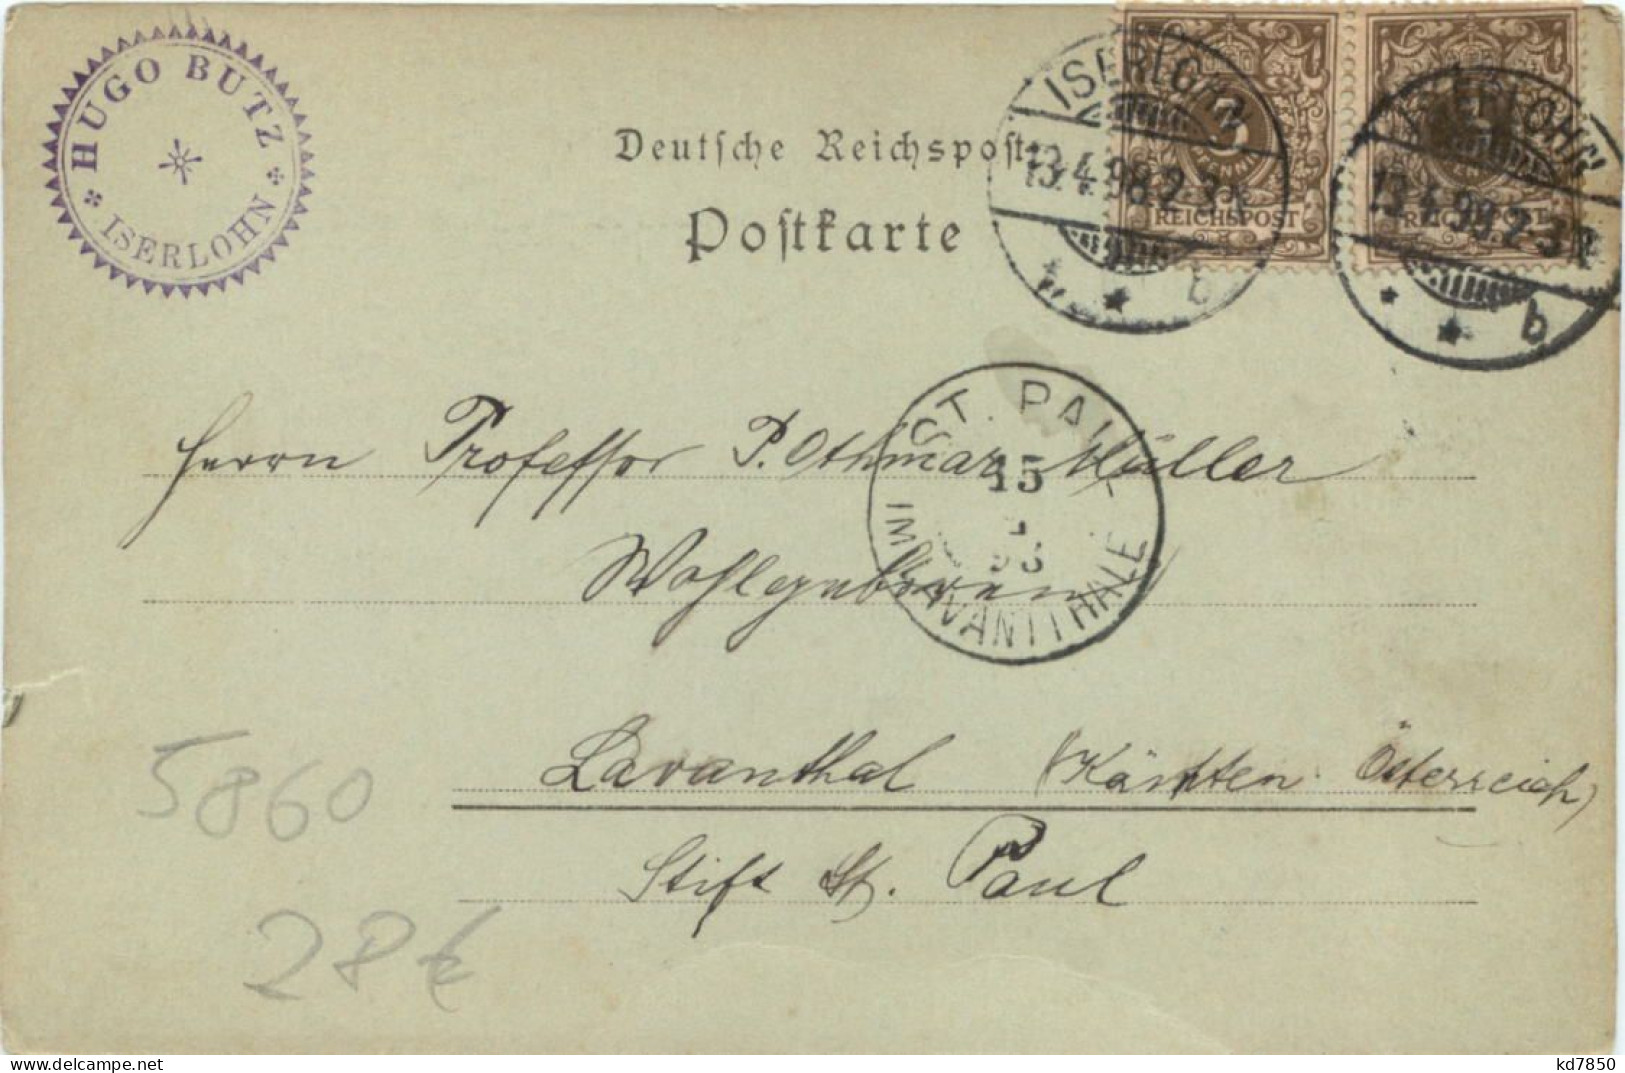 HUGO BUTZ
ISERLOHN
Deutsche Reichspost
Postkarte
ISERLOHN
13.4.98.2-3N.
b
ISERLOHN
13.4.98.2-3N.
b
3
PFENNIG
REICHSPOST
REICHSPOST
ST. PAUL
15
98
IM LAVANTTHALE
Herrn Professor P. Othmar Müller
Wohlgeboren
Lavanthal (Kärnten Österreich)
Stift St. Paul
5860
28€
www.delcampe.net
kd7850